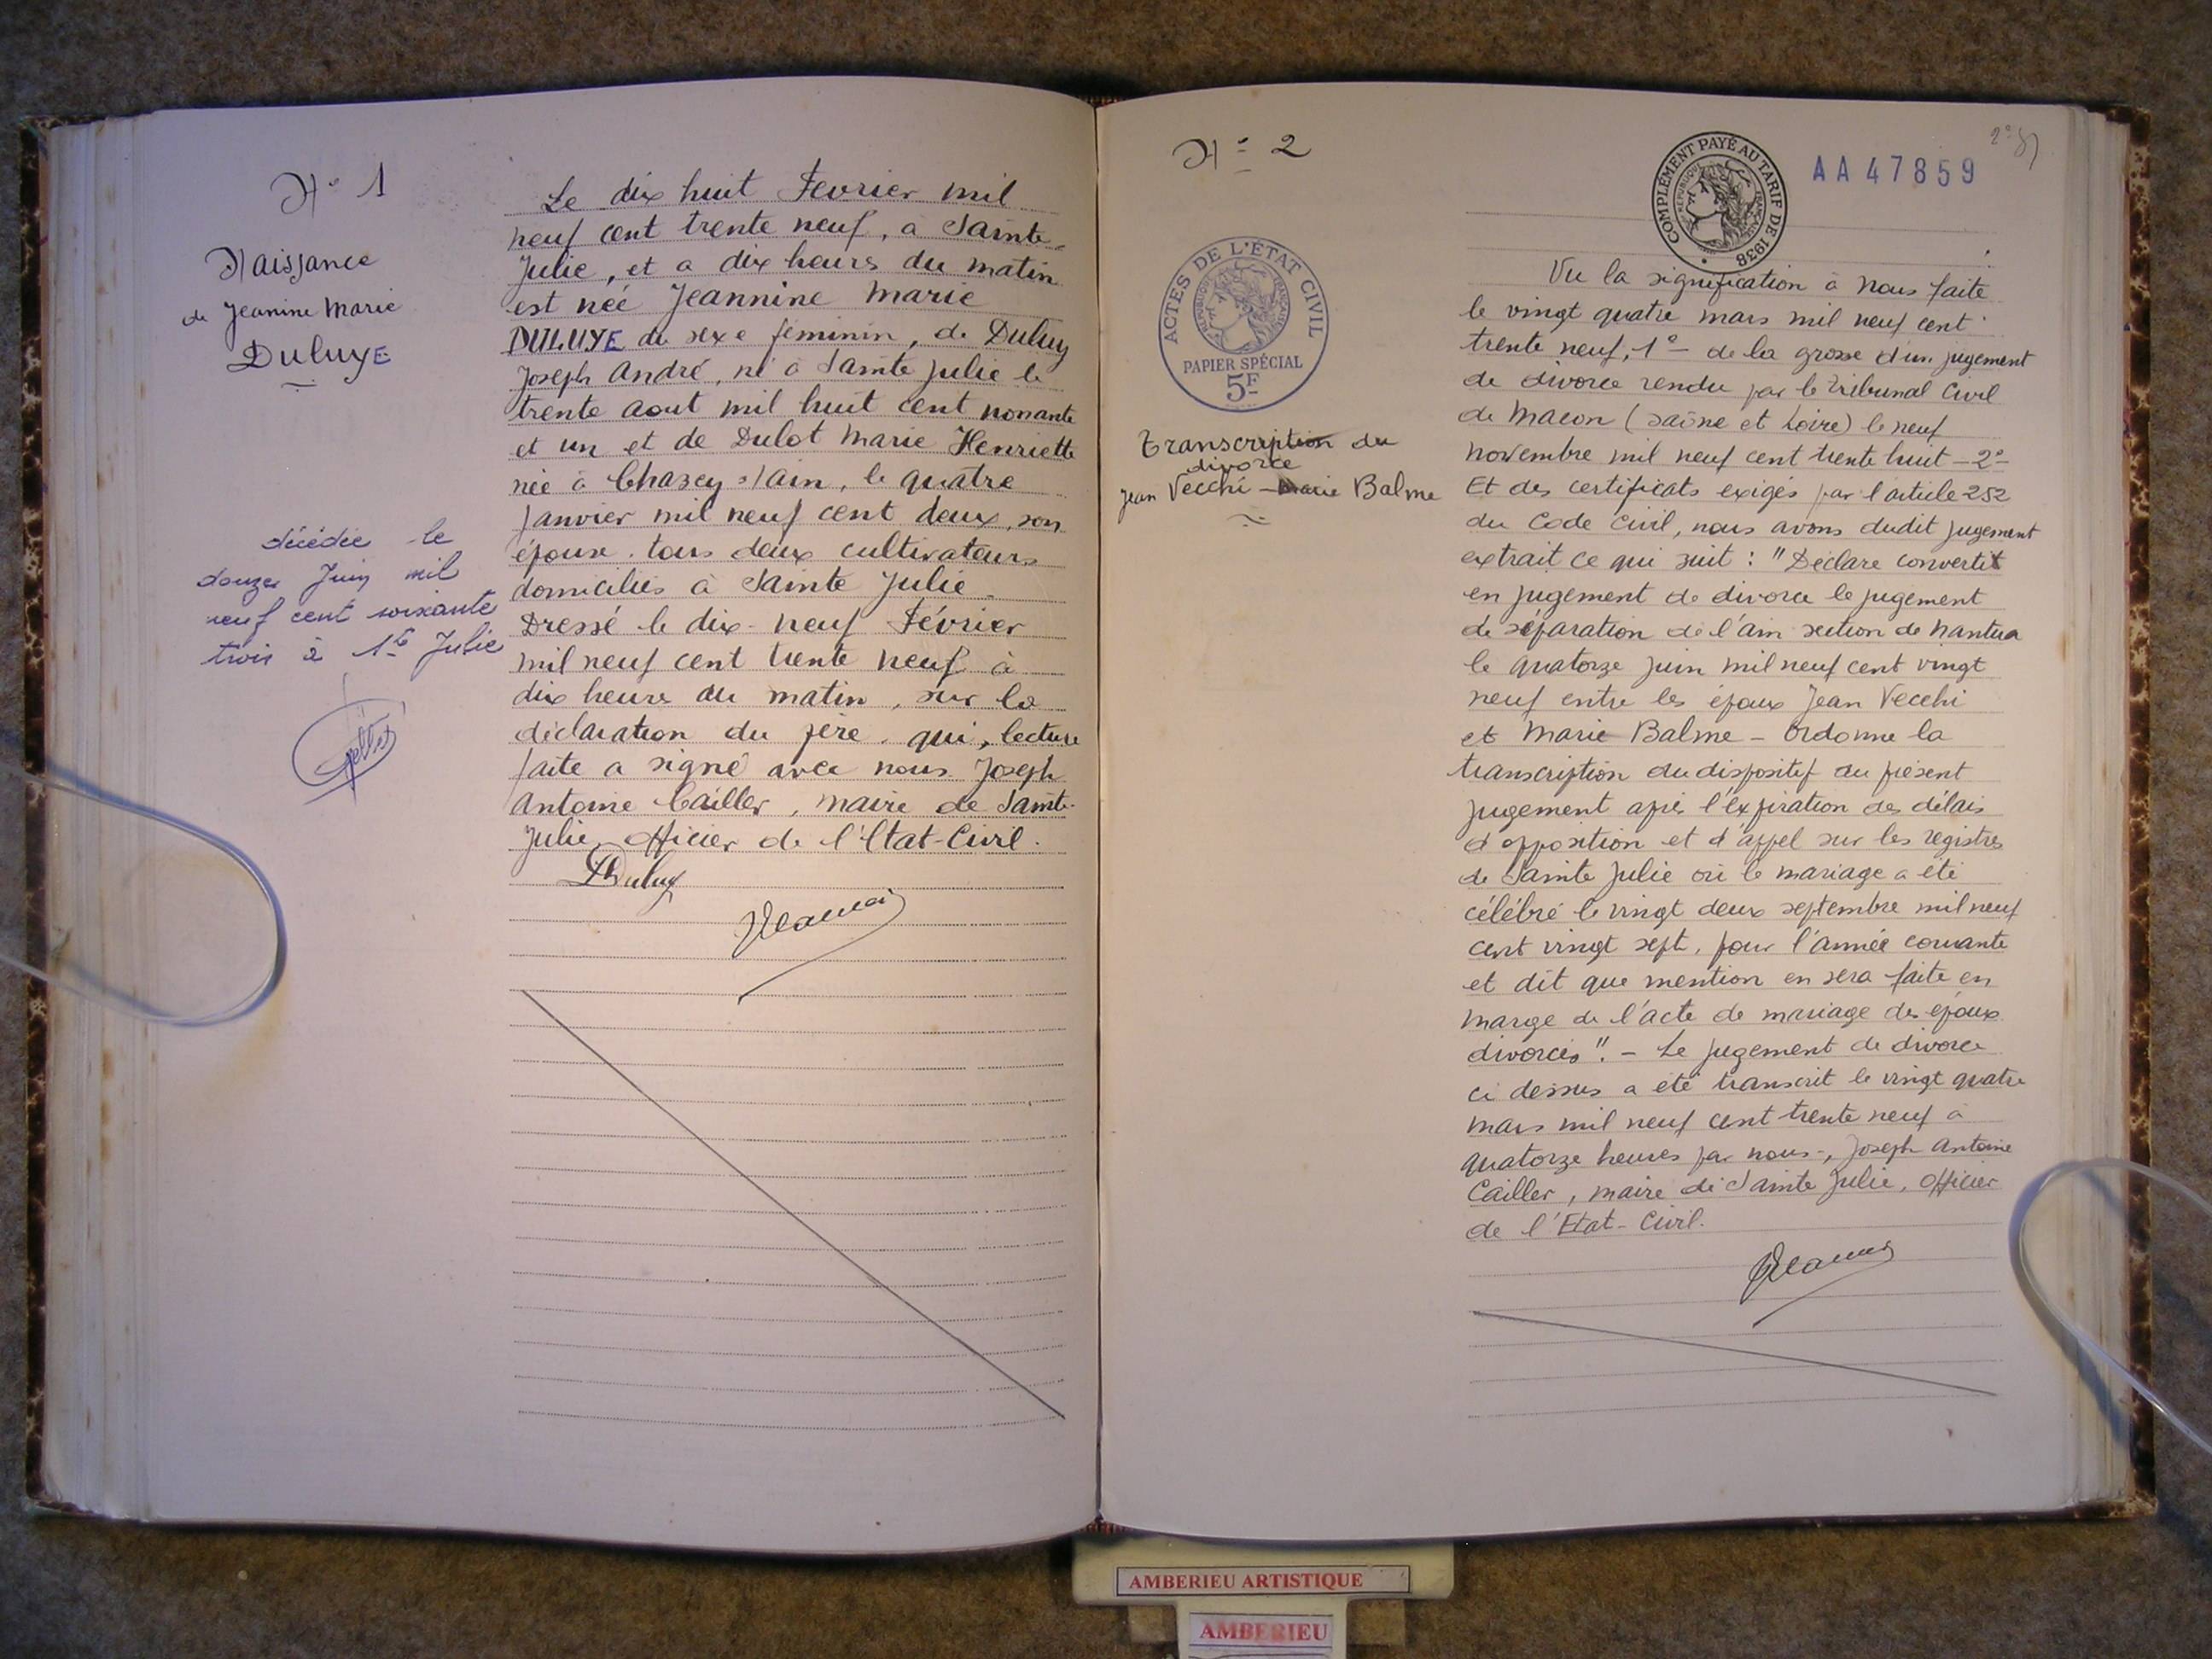 N° 1
Naissance
de Jeanine Marie
DULUYE
décédée le
douze Juin mil
neuf cent soixante
trois à Ste Julie
Le dix huit Fevrier mil
neuf cent trente neuf, a Sainte-
Julie, et a dix heures du matin
est née Jeannine Marie
DULUYE du sexe féminin, de Duluy
Joseph André, né à Sainte Julie le
trente aout mil huit cent nonante
et un et de Dulot Marie Henriette
née à Chazey s/ain, le quatre
Janvier mil neuf cent deux, son
épouse. tous deux cultivateurs
domiciliés à Sainte Julie.
Dressé le dix-neuf Février
mil neuf cent trente neuf à
dix heure du matin, sur la
déclaration du père. qui, lecture
faite a signé avec nous Joseph
Antoine Cailler, maire de Sainte-
Julie, Officier de l'Etat-Civil.
Duluy
N° 2
COMPLÉMENT PAYÉ AU TARIF DE 1938
RÉPUBLIQUE FRANÇAISE
AA 47859
ACTES DE L'ÉTAT CIVIL
RÉPUBLIQUE FRANÇAISE
PAPIER SPÉCIAL
5F
Transcription du
divorce
Jean Vecchi - Marie Balme
Vu la signification à nous faite
le vingt quatre mars mil neuf cent
trente neuf, 1° - de la grosse d'un jugement
de divorce rendu par le Tribunal Civil
de Macon (Saône et Loire) le neuf
novembre mil neuf cent trente huit - 2°-
Et des certificats exigés par l'article 252
du Code Civil, nous avons dudit jugement
extrait ce qui suit : "Déclare convertit
en jugement de divorce le jugement
de séparation de l'ain section de Nantua
le quatorze juin mil neuf cent vingt
neuf entre les époux Jean Vecchi
et Marie Balme - Ordonne la
transcription du dispositif du présent
jugement après l'expiration des délais
d'opposition et d'appel sur les registres
de Sainte Julie où le mariage a été
célébré le vingt deux septembre mil neuf
cent vingt sept, pour l'année courante
et dit que mention en sera faite en
marge de l'acte de mariage des époux
divorcés". - Le jugement de divorce
ci dessus a été transcrit le vingt quatre
mars mil neuf cent trente neuf à
quatorze heures par nous -, Joseph Antoine
Cailler, maire de Sainte Julie, Officier
de l'Etat-Civil.
AMBERIEU ARTISTIQUE
AMBERIEU